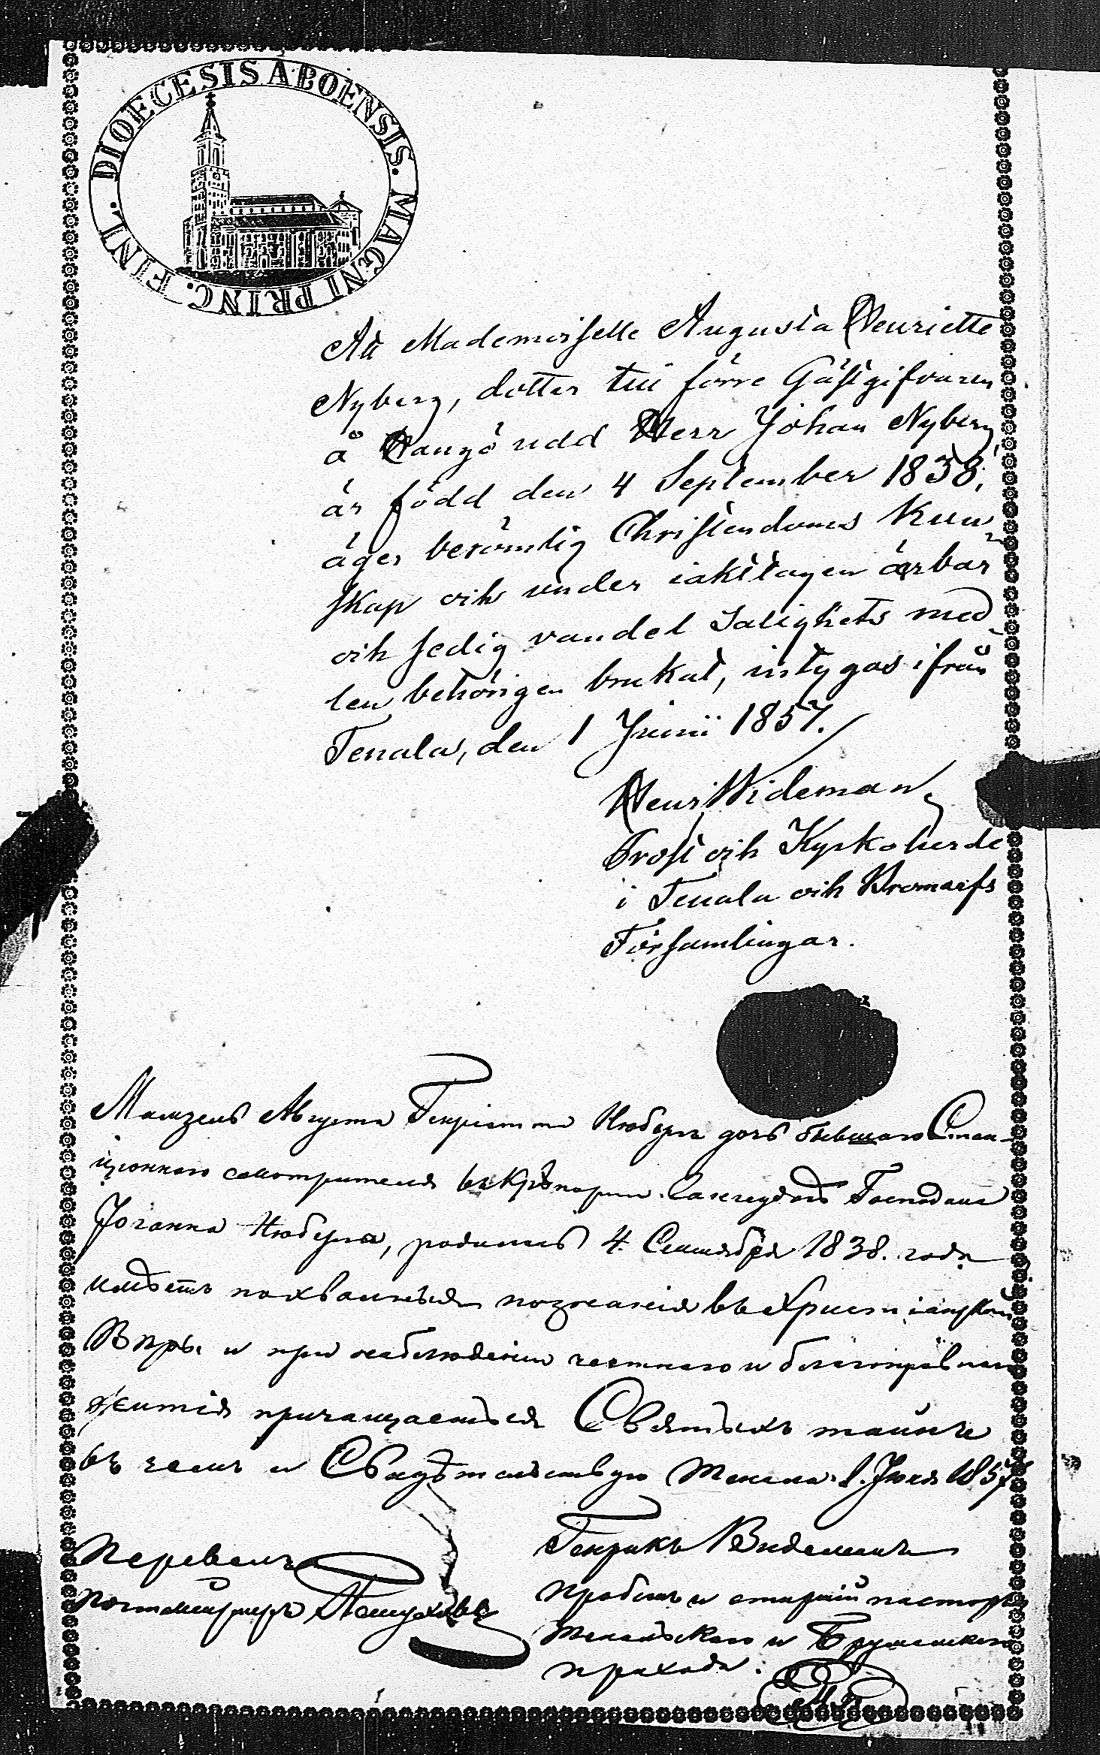 DIOECESIS ÅBOENSIS. MAGNI PRINC. FINL.
At Mademoiselle Augusta Henriette
Nyberg, dotter till förre Gästgifvaren
å Hangö udd Herr Johan Nyberg,
är född den 4 September 1838;
äger berömlig Christendoms kun
skap och under iakttagen ärbar
och sedig vandel Salighets med
len behörigen brukat, intygas ifrån
Tenala, den 1 Junii 1857.
Henr. Wideman,
Prost och Kyrkoherde
i Tenala och Bromarfs
Församlingar.
Мамзель Августа Генріетта Нюбергъ дочь бывшаго Стан-
ціоннаго смотрителя въ Крѣпости Гангеудъ Господина
Іоганна Нюберга, родилась 4. Сентября 1838. года
имѣетъ похвальныя познанія въ Христіанской
Вѣрѣ и при наблюденіи честнаго и благонравнаго
житія причащается Святыхъ таинъ
въ чемъ и Свидѣтельствую Тенала. 1. Іюня 1857
Генрикъ Видеманъ
Пробстъ и старшій пасторъ
Тенальскаго и
прихода.
Перевелъ
Почтмейстеръ
М. П.